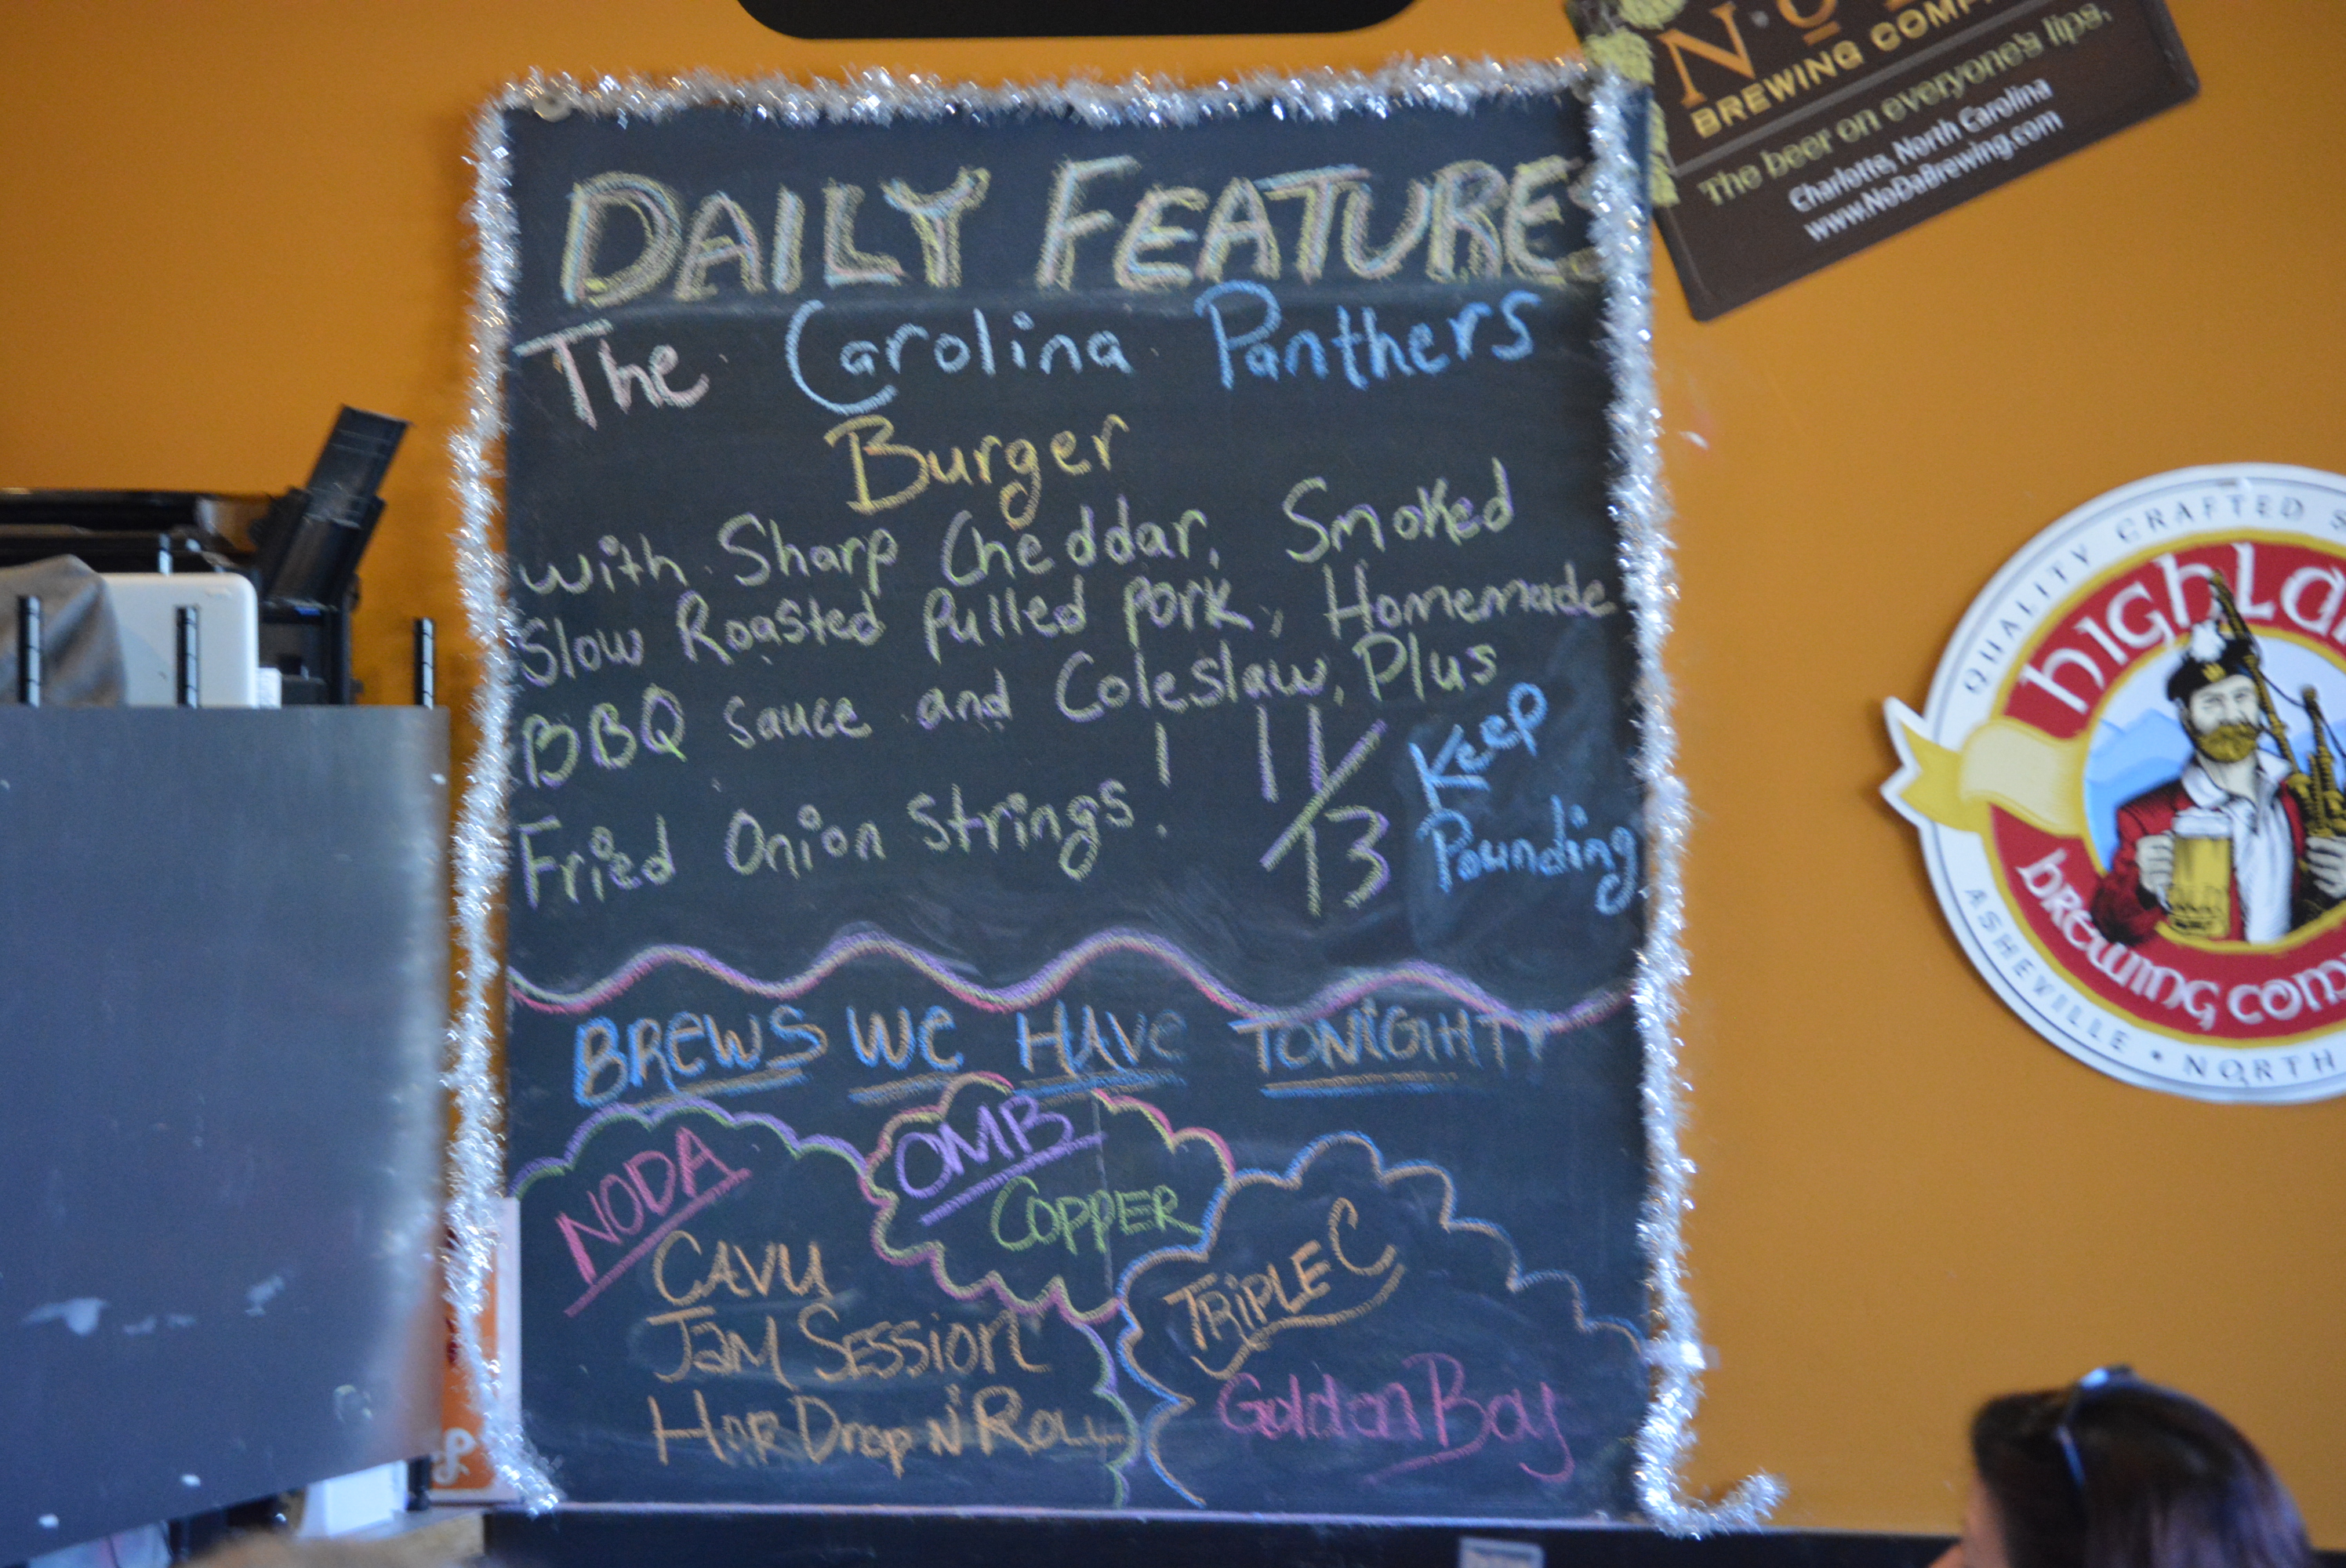 DAILY FEATURE
The Carolina Panthers
Burger
with Sharp Cheddar, Smoked
Slow Roasted Pulled Pork, Homemade
BBQ Sauce and Coleslaw, Plus
Fried Onion Strings!
11/13
Keep
Pounding
BREWS WE HAVE TONIGHT
NODA
CAVU
JAM SESSION
HOP DROP N' ROLL
OMB
COPPER
TRIPLE C
Golden Boy
BREWING
The beer on everyone's lips.
Charlotte, North Carolina
www.NoDaBrewing.com
QUALITY CRAFTED
BREWING
ASHEVILLE • NORTH